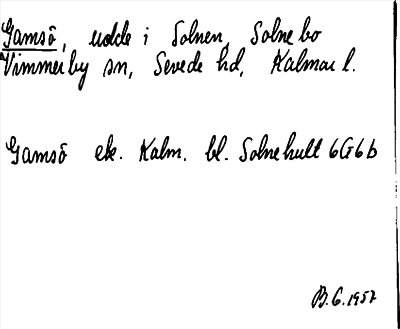 Gamsö, udde i Solnen, Solnebo
Vimmerby sn, Sevede hd, Kalmar l.
Gamsö ek. Kalm. bl. Solnehult 6G6b
B.G.1957